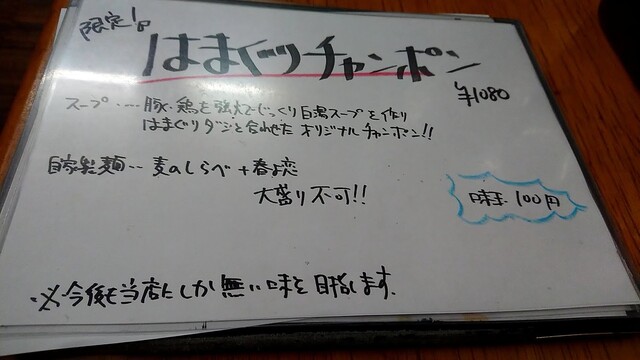 限定!
はまぐりチャンポン
¥1080
スープ・・・豚・鶏を強火でじっくり白湯スープを作り
はまぐりダシと合わせたオリジナルチャンポン!!
自家製麺・・麦のしらべ+春よ恋
大盛り不可!!
味玉 100円
※今後も当店にしか無い味を目指します。